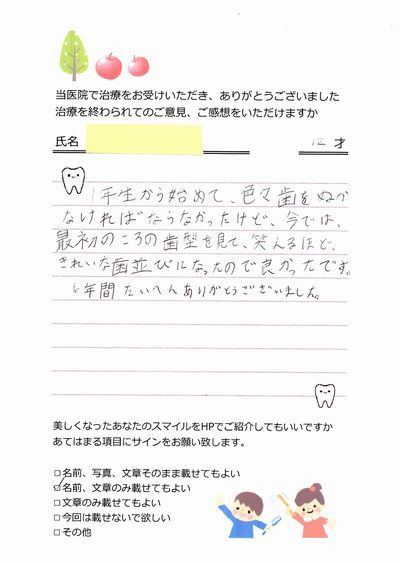 当医院で治療をお受けいただき、ありがとうございました
治療を終わられてのご意見、ご感想をいただけますか
氏名
12 才
1年生から始めて、色々歯をぬか
なければならなかったけど、今では、
最初のころの歯型を見て、笑えるほど、
きれいな歯並びになったので良かったです。
6年間たいへんありがとうございました。
美しくなったあなたのスマイルをHPでご紹介してもいいですか
あてはまる項目にサインをお願い致します。
□名前、写真、文章そのまま載せてもよい
□名前、文章のみ載せてもよい
□文章のみ載せてもよい
□今回は載せないで欲しい
□その他